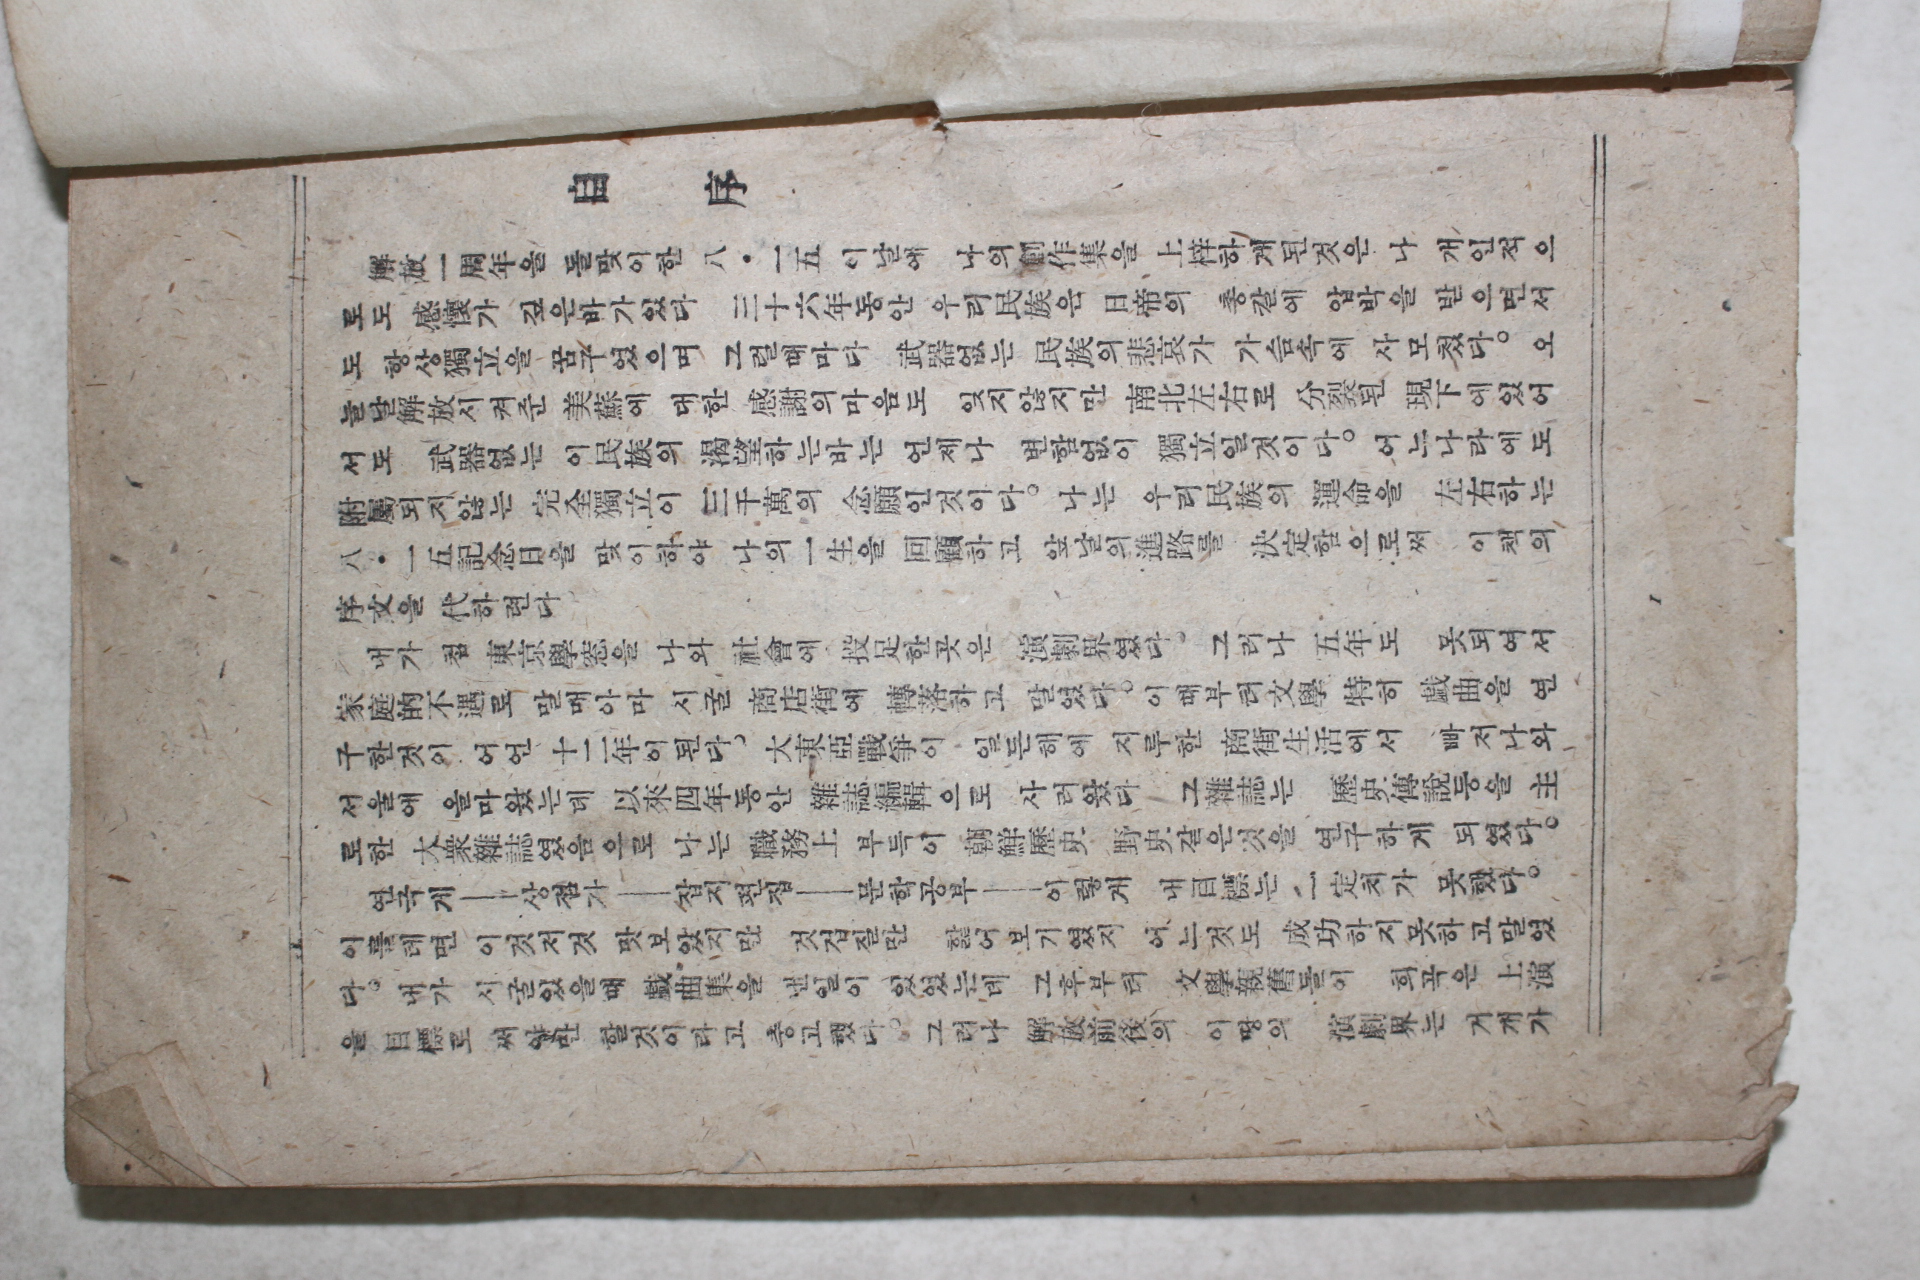 自序
解放一周年을 돌맞이한 八·一五 이날에 나의 創作集을 上梓하게된것은 나 개인적으
로도 感懷가 깊은바가있다 三十六年동안 우리民族은 日帝의 총칼에 압박을 받으면서
도 항상獨立을 꿈꾸었으며 그럴때마다 武器없는 民族의悲哀가 가슴속에 사모쳤다。오
늘날解放시켜준 美蘇에 대한 感謝의마음도 잊지않지만 南北左右로 分裂된 現下에있어
서도 武器없는 이民族의 渴望하는바는 언제나 변함없이 獨立일것이다。어느나라에도
附屬되지않는 完全獨立이 三千萬의 念願인것이다。나는 우리民族의 運命을 左右하는
八·一五記念日을 맞이하야 나의一生을 回顧하고 앞날의進路를 決定함으로써 이책의
序文을 代하련다
내가 東京學窓을 나와 社會에 投足한곳은 演劇界였다。그러나 五年도 못되여서
家庭的不遇로 말매아마 시굴 商店街에 轉落하고 말었다。이때부터文學 特히 戱曲을 연
구한것이 어언 十二年이된다、大東亞戰爭이 일든해에 지루한 商街生活에서 빠저나와
서울에 을마왔는데 以來四年동안 雜誌編輯으로 사러왔다 그雜誌는 歷史傳說등을 主
로한 大衆雜誌였음으로 나는 職務上 부득이 朝鮮歷史 野史같은것을 연구하게 되였다。
연극게──상점가──잡지편집──문학공부──이렇게 내目標는 一定치가 못했다。
이를테면 이것저것 맛보았지만 것겁질만 핥어보기였지 어느것도 成功하지못하고말었
다。내가 시굴있을때 戱曲集을 낸일이 있었는데 그후부터 文學親舊들이 희곡은 上演
을 目標로 써야만 할것이라고 충고했다。그러나 解放前後의 이땅의 演劇界는 거개가
1